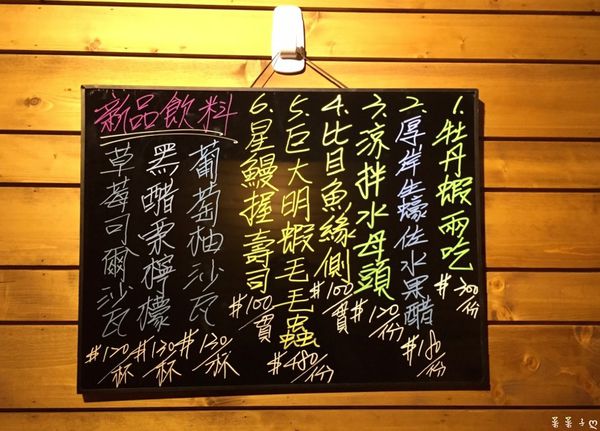 1.牡丹蝦兩吃 #300/份
2.厚岸生蠔佐水果醋 #180/份
3.涼拌水母頭 #120/份
4.比目魚緣側 #100/貫
5.巨大明蝦毛毛蟲 #480/份
6.星鰻握壽司 #100/貫
新品飲料
葡萄柚沙瓦 #130/杯
黑醋栗檸檬 #130/杯
草莓可爾沙瓦 #120/杯